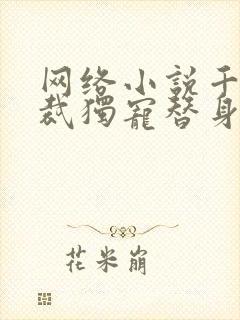 网络小説千
裁獨寵替身
花米崩